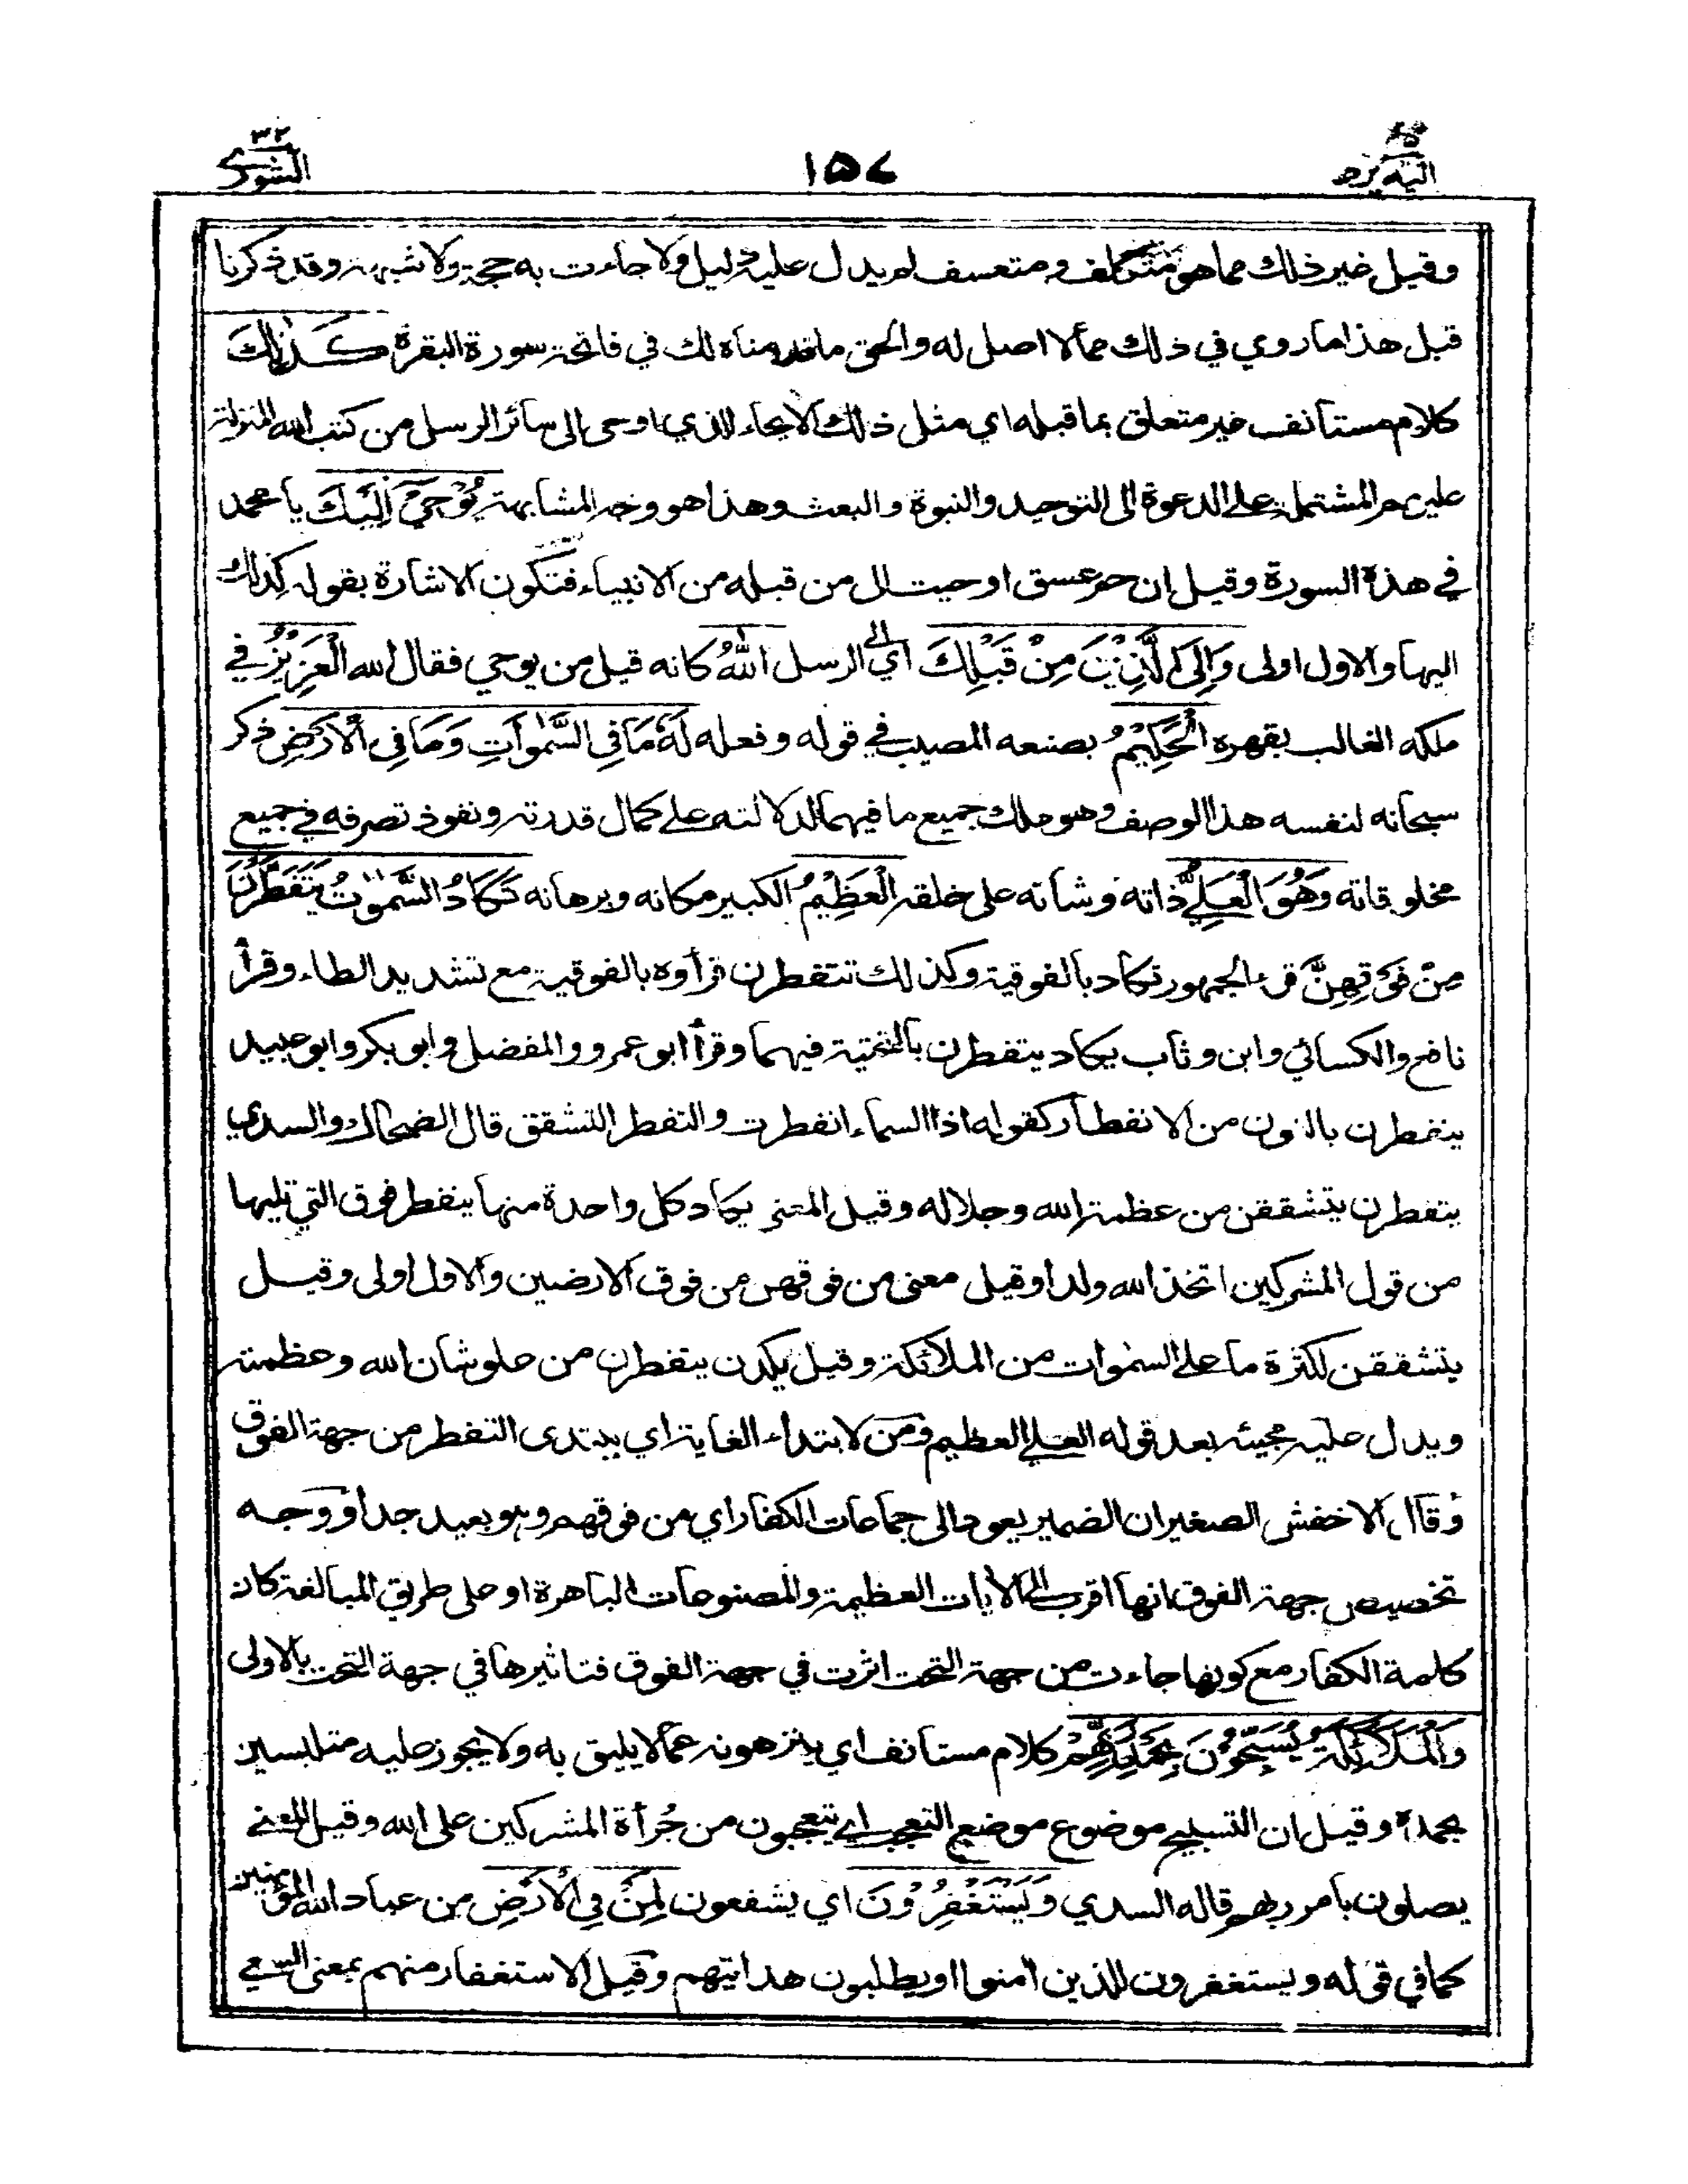 اليه يرد ٢٥
١٥٧
الشورى ٤٢
وقيل غير ذلك مما هو متكلف ومتعسف لم يدل عليه دليل ولا جاءت به حجة ولا شبهة وقد ذكرنا
قبل هذا ما روي في ذلك مما لا اصل له والحق ما قدمناه لك في فاتحة سورة البقرة كَذٰلِكَ
كلام مستأنف غير متعلق بما قبله اي مثل ذلك الايحاء الذي اوحى الى سائر الرسل من كتب الله المنزلة
عليهم المشتملة على الدعوة الى التوحيد والنبوة والبعث وهذا هو وجه المشابهة يُوْحِيْٓ اِلَيْكَ يا محمد
في هذه السورة وقيل ان حم عسق اوحيت الى من قبله من الانبياء فتكون الاشارة بقوله كذلك
اليها والاول اولى وَاِلَى الَّذِيْنَ مِنْ قَبْلِكَ اي الى الرسل اللّٰهُ كانه قيل من يوحي فقال الله الْعَزِيْزُ في
ملكه الغالب بقهره الْحَكِيْمُ بصنعه المصيب في قوله وفعله لَهٗ مَا فِي السَّمٰوَاتِ وَمَا فِي الْاَرْضِ ذكر
سبحانه لنفسه هذا الوصف وهو ملك جميع ما فيهما لدلالته على كمال قدرته ونفوذ تصرفه في جميع
مخلوقاته وَهُوَ الْعَلِيُّ ذاته وشأنه على خلقه الْعَظِيْمُ الكبير مكانه وبرهانه تَكَادُ السَّمٰوٰتُ يَتَفَطَّرْنَ
مِنْ فَوْقِهِنَّ قرء الجمهور تكاد بالفوقية وكذلك تتفطرن قرأوه بالفوقية مع تشديد الطاء وقرأ
نافع والكسائي وابن وثاب يكاد يتفطرن بالتحتية فيهما وقرأ ابو عمرو والمفضل وابو بكر وابو عبيد
ينفطرن بالنون من الانفطار كقوله اذا السماء انفطرت والتفطر التشقق قال الضحاك والسدي
يتفطرن يتشققن من عظمة الله وجلاله وقيل المعنى يكاد كل واحدة منها ينفطر فوق التي تليها
من قول المشركين اتخذ الله ولدا وقيل معنى من فوقهن من فوق الارضين والاول اولى وقيل
يتشققن لكثرة ما على السموات من الملائكة وقيل يكدن يتفطرن من علو شان الله وعظمته
ويدل عليه مجيئه بعد قوله العلي العظيم ومن لابتداء الغاية اي يبتدى التفطر من جهة الفوق
وقال الاخفش الصغير ان الضمير يعود الى جماعات الكفار اي من فوقهم وهو بعيد جدا ووجه
تخصيص جهة الفوق انها اقرب الى الآيات العظيمة والمصنوعات الباهرة او على طريق المبالغة كان
كلمة الكفار مع كونها جاءت من جهة التحت اثرت في جهة الفوق فتاثيرها في جهة التحت بالاولى
وَالْمَلَائِكَةُ يُسَبِّحُوْنَ بِحَمْدِ رَبِّهِمْ كلام مستأنف اي ينزهونه عما لا يليق به ولا يجوز عليه متلبسين
بحمده وقيل ان التسبيح موضوع موضع التعجب اي يتعجبون من جُرأة المشركين على الله وقيل المعنى
يصلون بامر ربهم قاله السدي وَيَسْتَغْفِرُوْنَ اي يشفعون لِمَنْ فِي الْاَرْضِ من عباد الله المؤمنين
كما في قوله ويستغفرون للذين آمنوا او يطلبون هدايتهم وقيل الاستغفار منهم بمعنى السعي